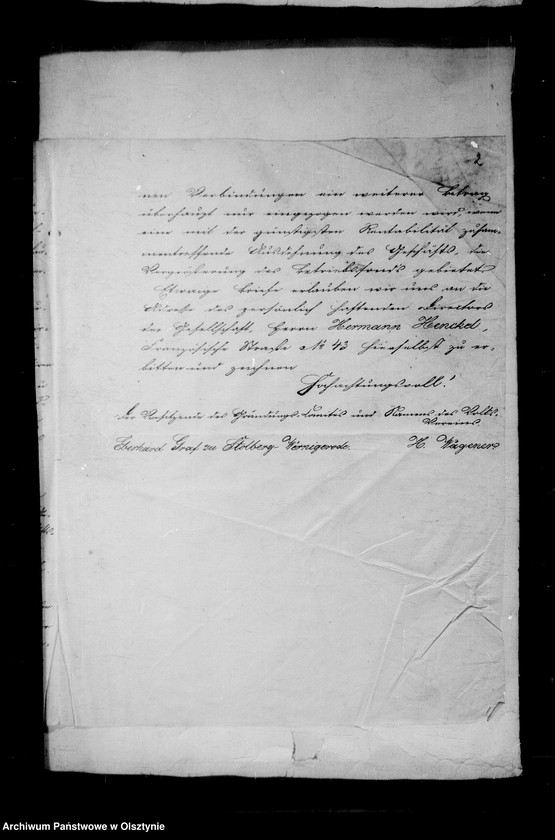 2
nen Verbindungen ein weiterer Betrag
überhaupt nur eingezogen werden wird, wenn
eine mit der günstigsten Rentabilität zusam-
mentreffende Ausdehnung des Geschäfts, die
Vergrößerung des Betriebsfonds gebietet.
Etwaige Briefe erlauben wir uns an die
Adresse des persönlich haftenden Directors
der Gesellschaft, Herrn Hermann Henckel,
Französische Straße No 43 hierselbst zu er-
bitten und zeichnen
Hochachtungsvoll!
Der Vorsitzende des Gründungs-Comités und Namens des Volks-
Vereins.
Eberhard Graf zu Stolberg-Wernigerode. H. Wagener
Archiwum Państwowe w Olsztynie